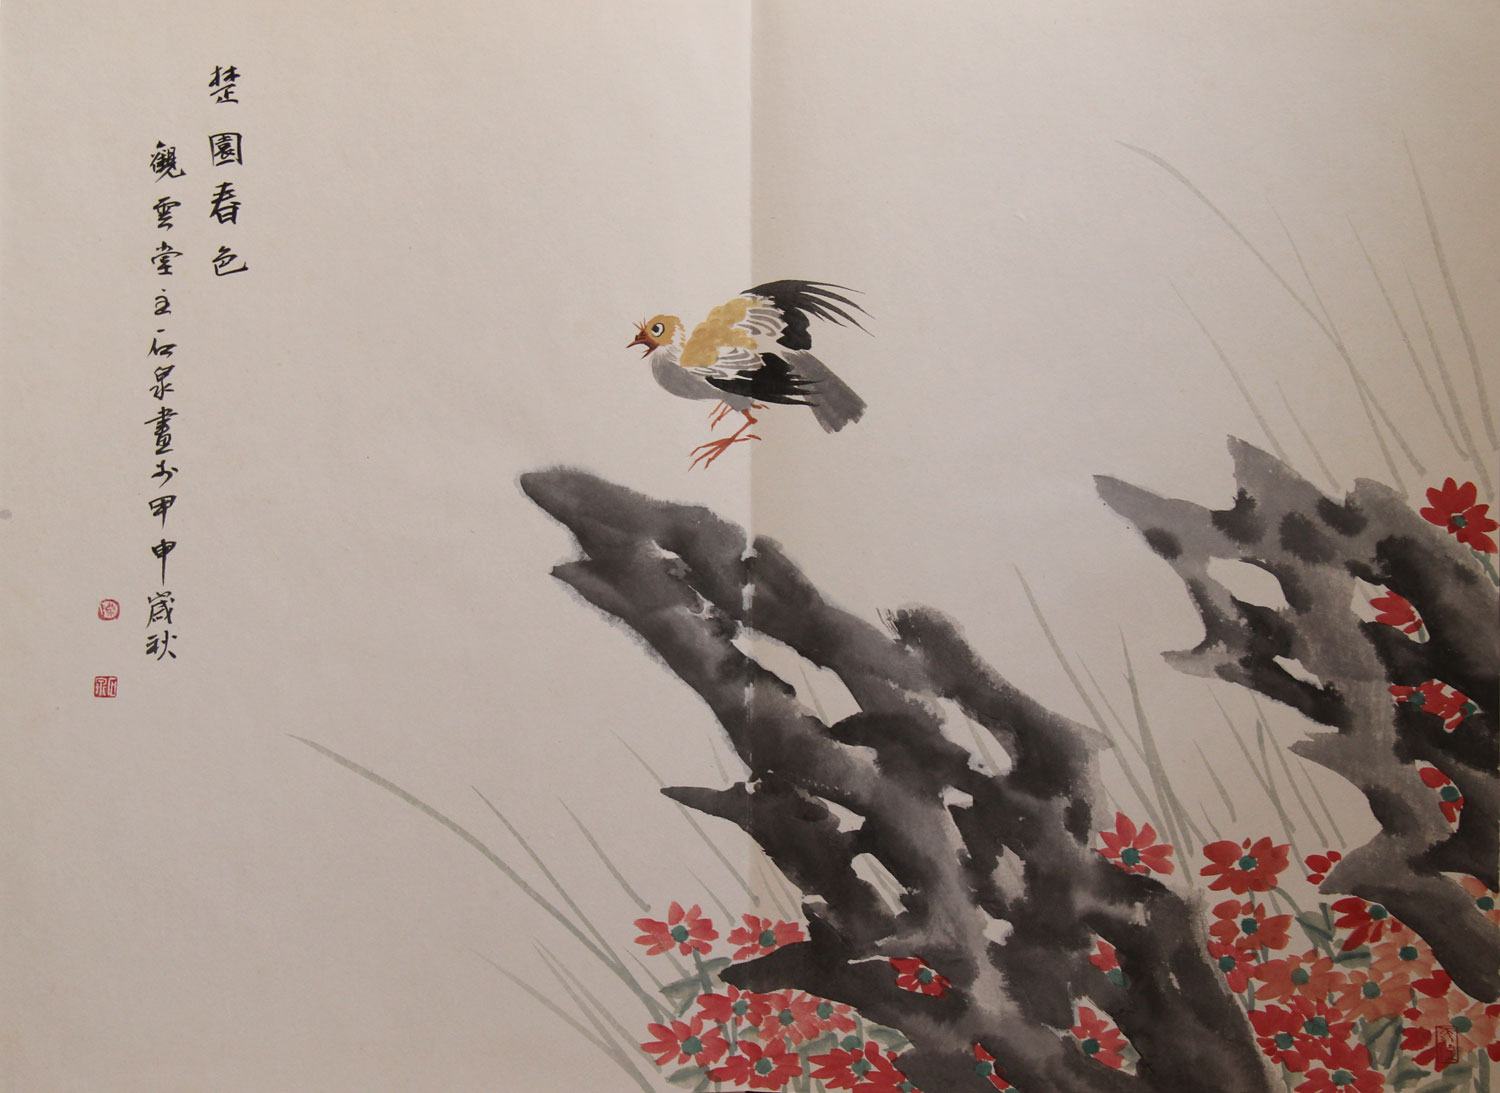 楚園春色
觀雲堂主石泉畫於甲申歲秋